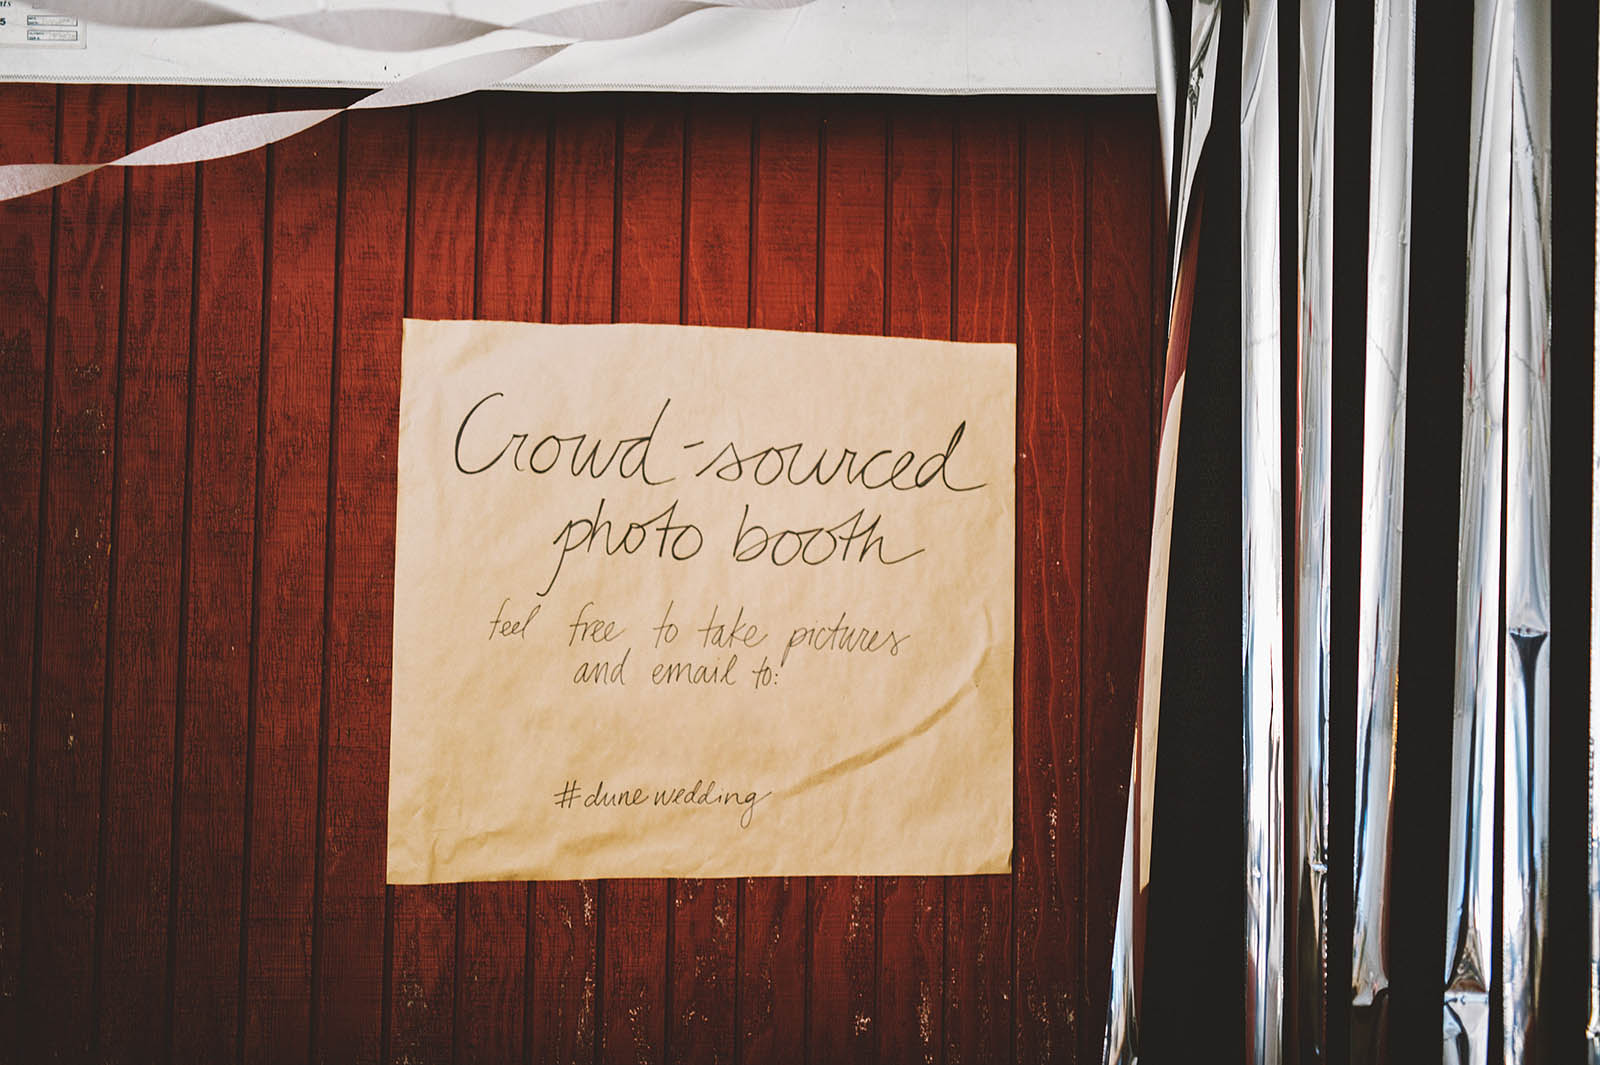 Crowd-sourced
photo booth
feel free to take pictures
and email to:
#dunewedding